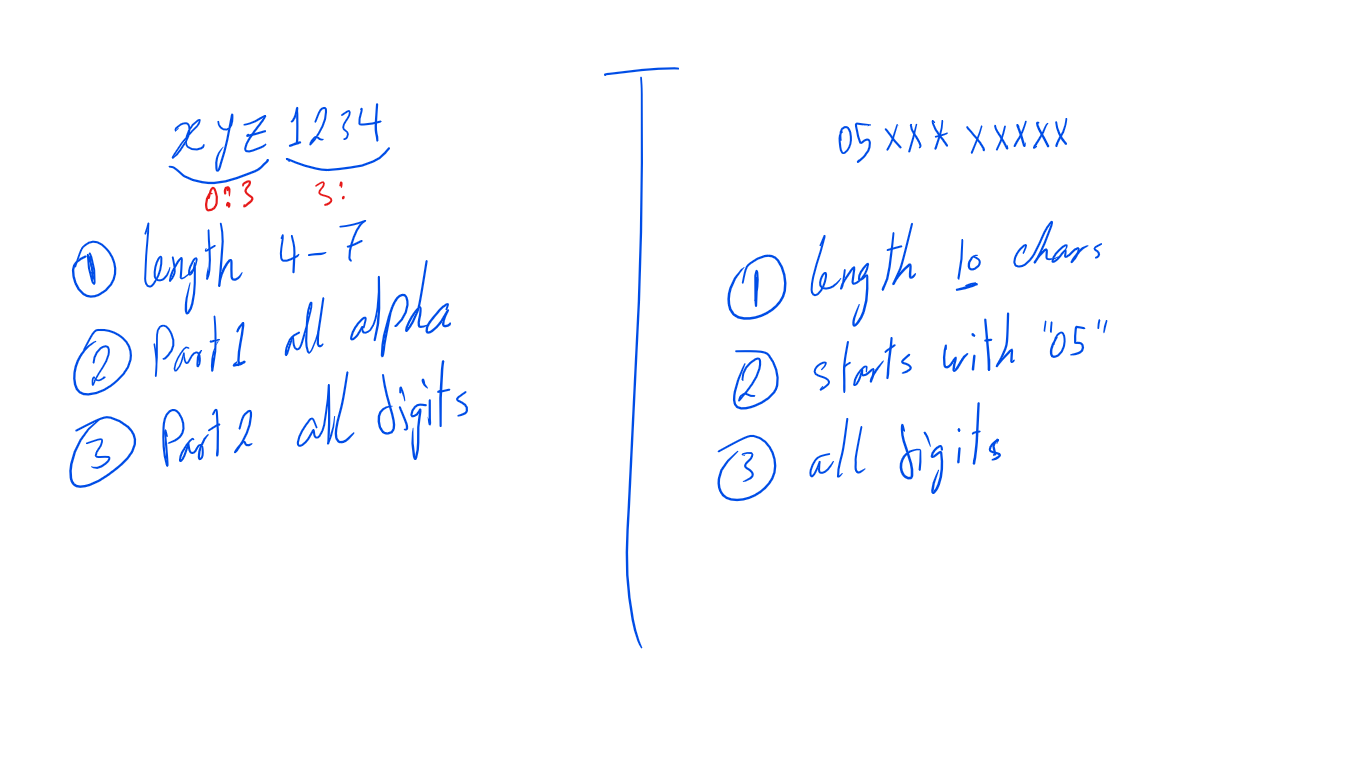 xyz 1234
0:3 3:
① length 4-7
② Part 1 all alpha
③ Part 2 all digits
05xxx xxxxx
① length 10 chars
② starts with "05"
③ all digits